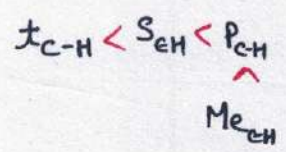 t_C-H < S_CH < P_C-H
^
Me_CH